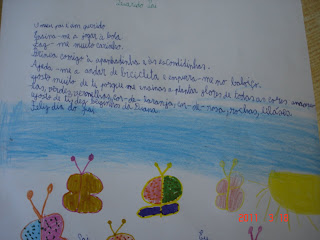 Querido Pai
O meu pai é um querido.
Ensina-me a jogar à bola.
Faz-me muito carinho.
Brinca comigo à apanhadinha e às escondidinhas.
Ajuda-me a andar de bicicleta e empurra-me no baloiço.
Gosto muito de ti porque me ensinas a plantar flores de todas as cores
verdes, vermelhas, cor-de-laranja, cor-de-rosa, roxas, lilases.
Gosto de ti, dez beijinhos da
Feliz dia do Pai